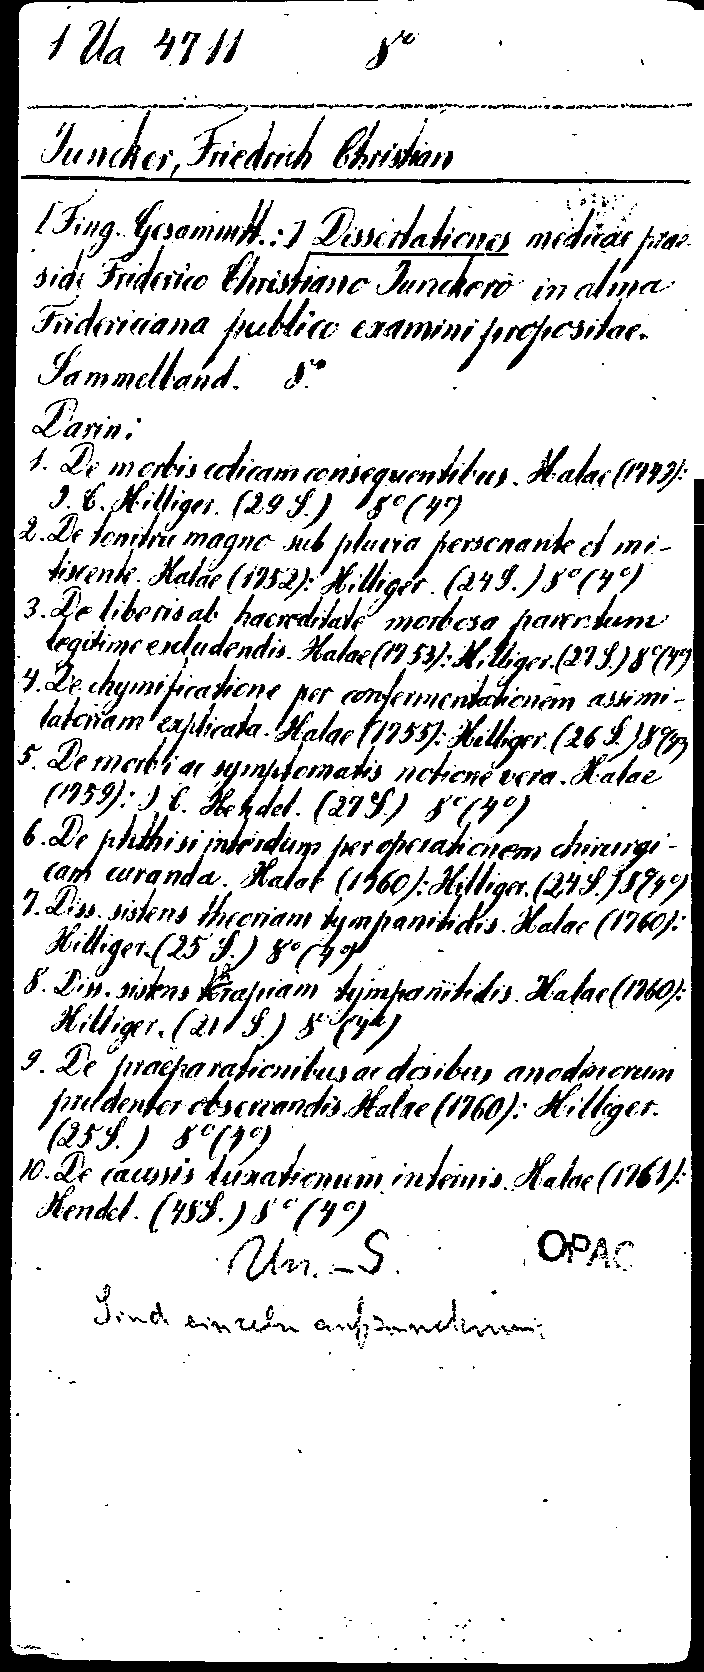 1 Ua 4711 8°
Juncker, Friedrich Christian
[Fing. Gesammtt.:] Dissertationes medicae prae-
side Friderico Christiano Junckero in alma
Fridericiana publico examini propositae.
Sammelband. 8°
Darin:
1. De morbis colicam consequentibus. Halae (1743):
J. C. Hilliger. (29 S.) 8° (4°)
2. De tonitru magno sub pluvia personante et mi-
tiscente. Halae (1752): Hilliger. (24 S.) 8° (4°)
3. De liberis ab haereditate morbosa parentum
legitime excludendis. Halae (1753): Hilliger. (27 S.) 8° (4°)
4. De chymificatione per confermentationem assimi-
latoriam explicata. Halae (1755): Hilliger. (26 S.) 8° (4°)
5. De morbi ac symptomatis notione vera. Halae
(1759): J C. Hendel. (27 S.) 8° (4°)
6. De phthisi interdum per operationem chirurgi-
cam curanda. Halae (1760): Hilliger. (24 S.) 8° (4°)
7. Diss. sistens theoriam tympanitidis. Halae (1760):
Hilliger. (25 S.) 8° (4°)
8. Diss. sistens therapiam tympanitidis. Halae (1760):
Hilliger. (21 S.) 8° (4°)
9. De praeparationibus ac dosibus anodinorum
prudenter observandis. Halae (1760): Hilliger.
(25 S.) 8° (4°)
10. De caussis luxationum internis. Halae (1761):
Hendel. (48 S.) 8° (4°)
Un.-S. OPAC
Sind einzeln aufzunehmen